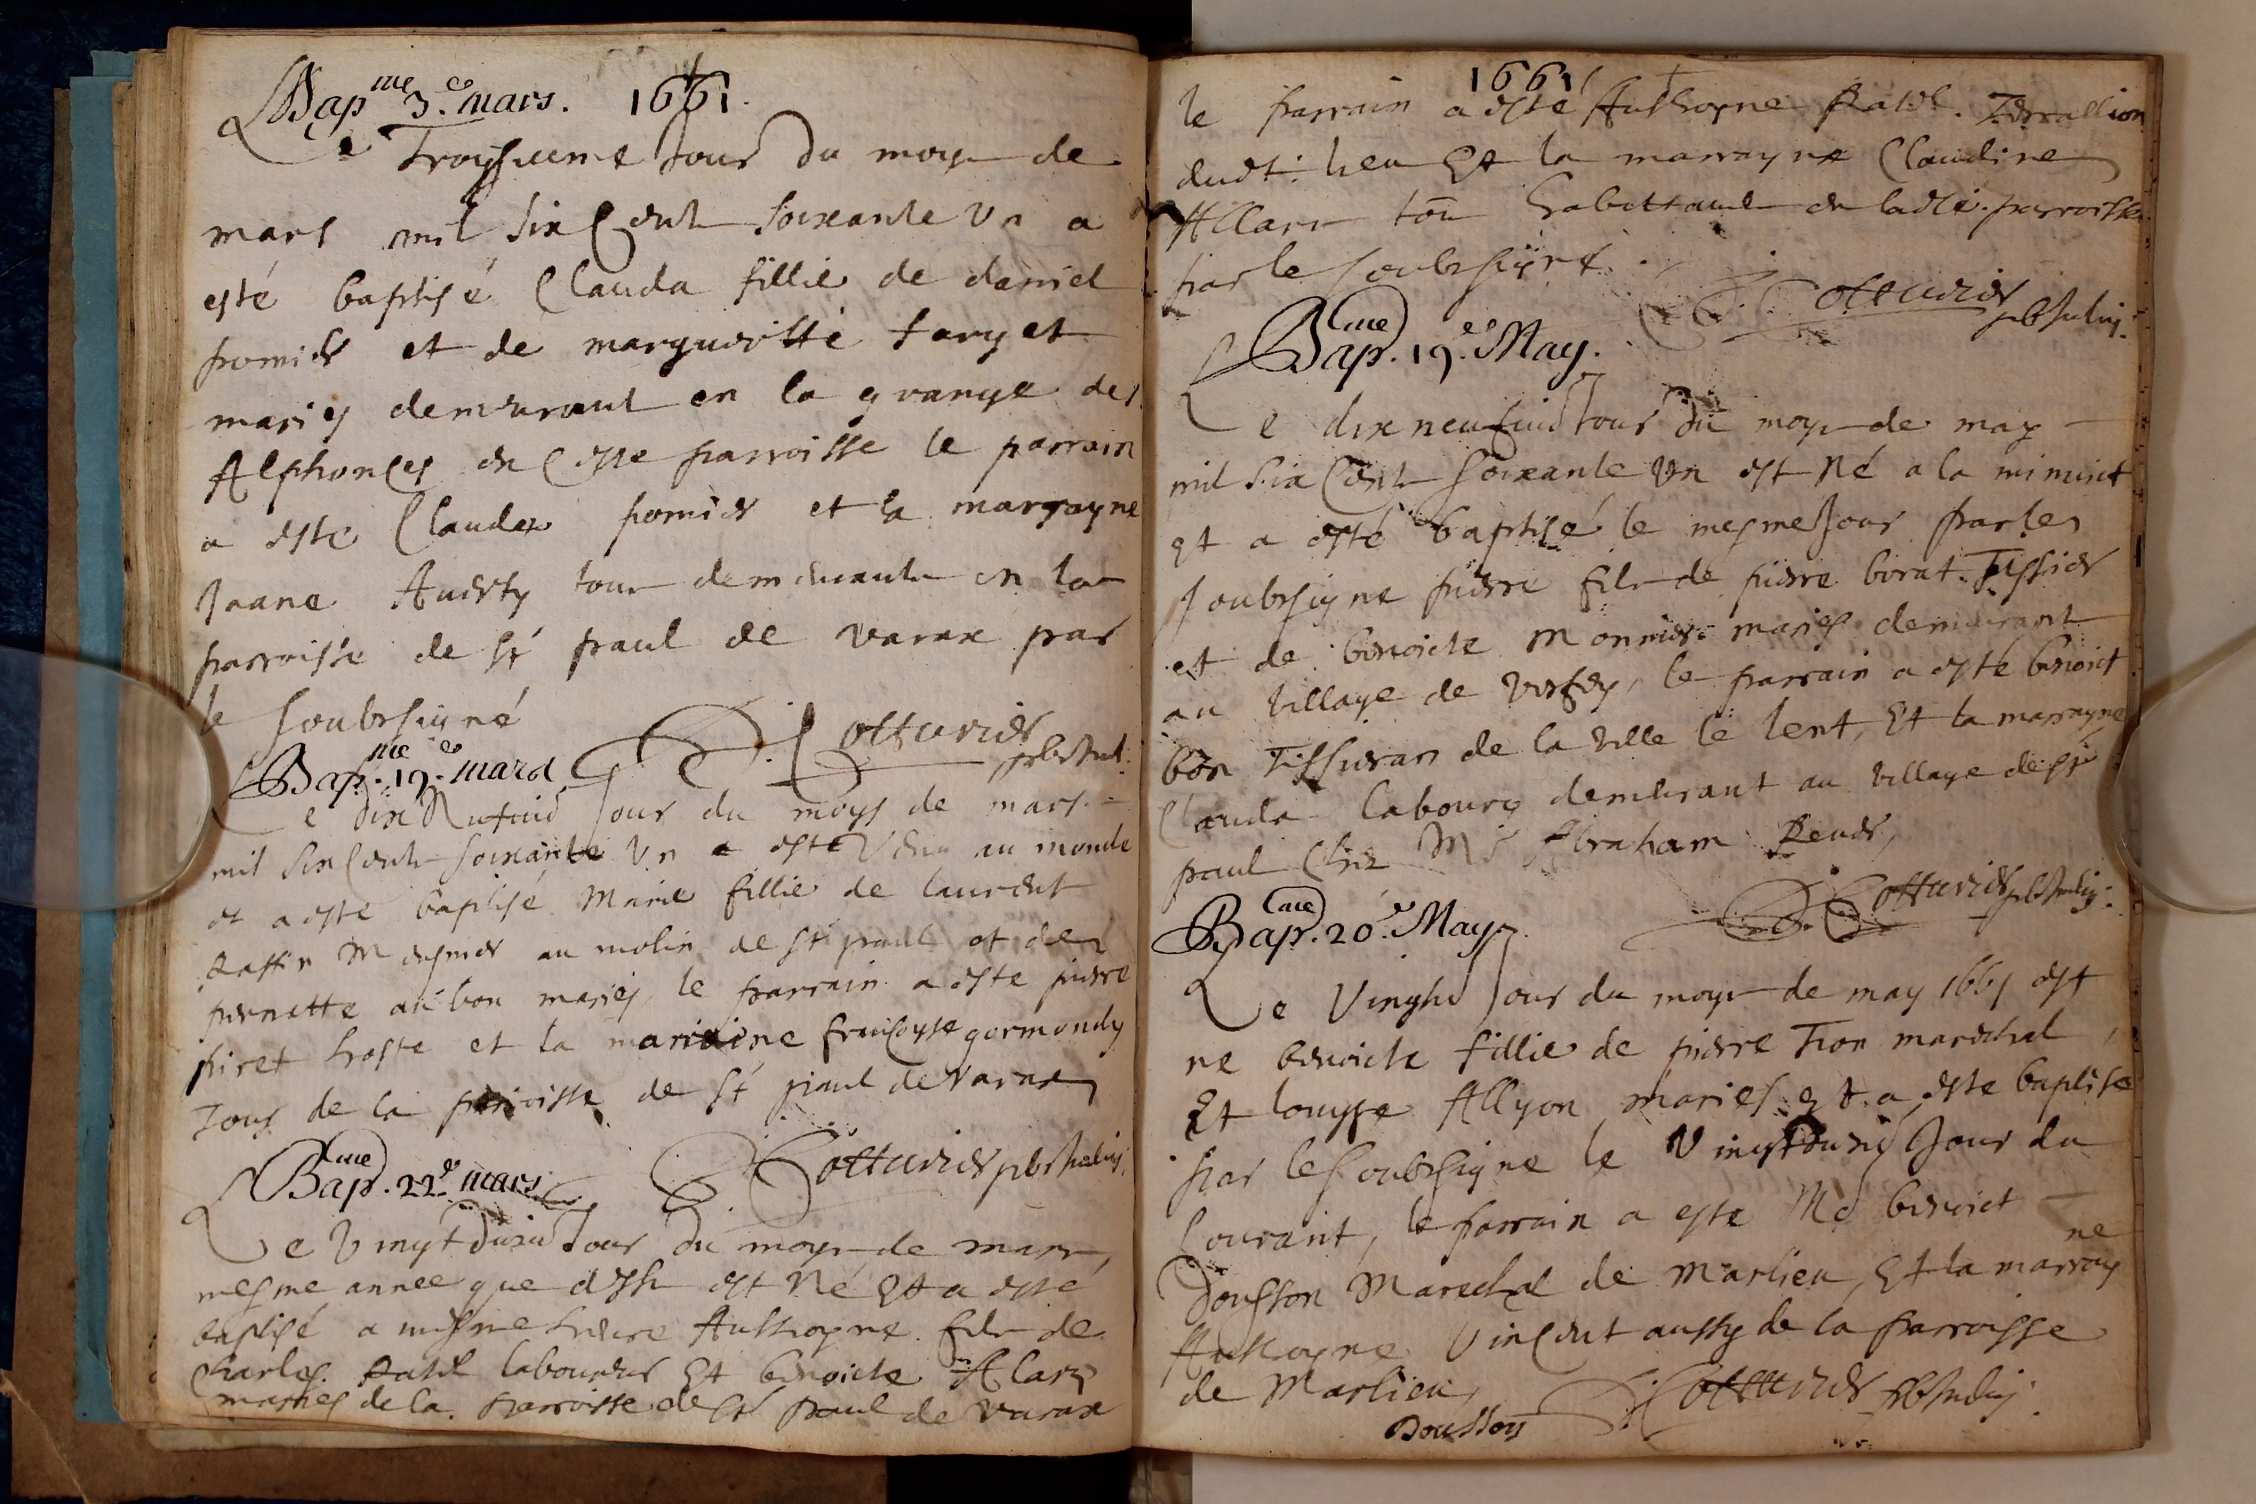 Bap.me 3.e mars. 1661.
Le Troysieme Jour du moys de
mars mil six Cent soixante Un a
esté baptisé Clauda fillie de daniel
pomier et de margueritte farget
maries demeurant en la grange des
Alphonces en Ceste parroisse le parrain
a este Claude pomier et la marrayne
Jeane tous demeurant en la
parroisse de St paul de varax par
le soubsigné
Cotturier pbr
Bap.me 19.e mars
Le dix Jour du moys de mars
mil six Cent soixante Un a este Venu au monde
et a este baptisé Marie fillie de laurent
Raffin Mesnier au molin de St paul et de
pernette aubon maries, le parrain a este pierre
et la maraine francoyse gormondy
Tous de la parroisse de St paul de Varax
Cotturier pbr
Bap.me 22.e mars
Le Vingt Jour du moys de mars
mesme annee que dessu est Né Et a esté
baptisé a mesme heure Anthoyne fils de
Charles Ratil laboureur Et benoicte Alary
maries de la parroisse de St paul de varax
1661
le parrain a esté Anthoyne Ratil Terrallion
dudt. lieu Et la marrayne Claudine
tou en ladte. parroisse
par le soubsigné.
Cotturier pbr
Bap.me 19.e May.
Le dix Jour du moys de may
mil six Cent soixante Un est Né a la minuict
Et a esté baptisé le mesme Jour par le
soubsigne pierre fils de pierre borat Tissier
et de benoicte Monnier maries demeurant
au Village de le parrain a esté benoict
bon Tissieran de la Ville le lent, Et la marrayne
Clauda laboury demeurant au Village de St
paul Chez Mr Abraham
Cotturier pbr
Bap.me 20.e May.
Le Vinght Jour du moys de may 1661 est
ne benoicte fillie de pierre Tron marechal,
Et louyse Allyon maries Et a este baptise
par le soubsigne le Vingt Jour du
Courant, le parrain a este Me benoict
Dousson Marechal de Marlieu, Et la marrayne
Anthoyne Vincent aussy de la parroisse
de Marlieu,
Cotturier pbr
Dousson